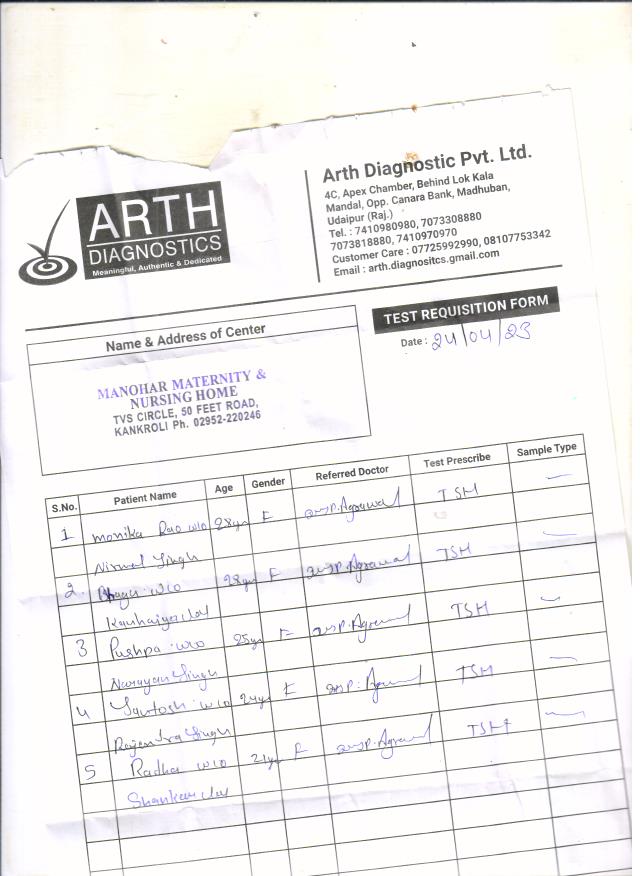 ARTH
DIAGNOSTICS
Meaningful, Authentic & Dedicated
Arth Diagnostic Pvt. Ltd.
4C, Apex Chamber, Behind Lok Kala
Mandal, Opp. Canara Bank, Madhuban,
Udaipur (Raj.)
Tel. : 7410980980, 7073308880
7073818880, 7410970970
Customer Care : 07725992990, 08107753342
Email : arth.diagnositcs.gmail.com
TEST REQUISITION FORM
Date : 24/04/23
Name & Address of Center
MANOHAR MATERNITY &
NURSING HOME
TVS CIRCLE, 50 FEET ROAD,
KANKROLI Ph. 02952-220246
S.No. Patient Name Age Gender Referred Doctor Test Prescribe Sample Type
1 Monika Rao w/o 28yr F Agrawal TSH —
Nirmal Singh
2. w/o 28yr F Agrawal TSH —
Kanhaiya lal
3 Pushpa w/o 25yr F Agrawal TSH —
Narayan Singh
4 Santosh w/o 24yr F TSH —
Rajendra Singh
5 Radha w/o 21yr F Agrawal TSH —
Shankar lal